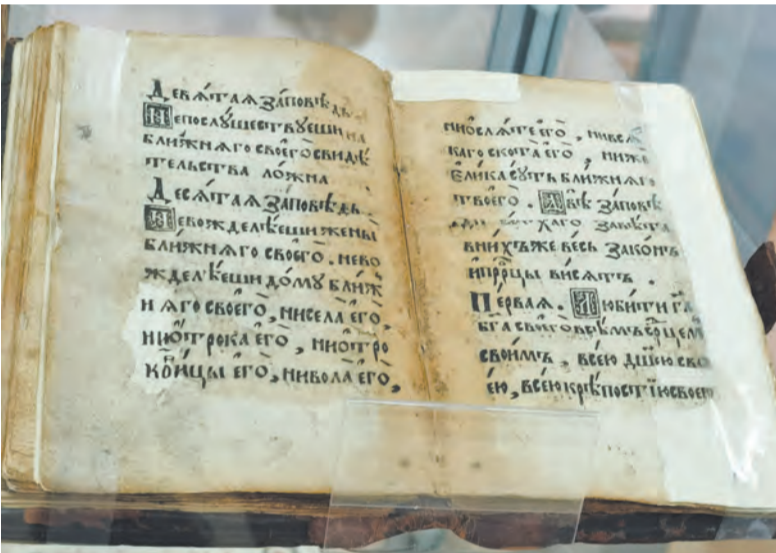 Девѧ́таѧ за́повѣдь.
Непослꙋ́шествꙋеши на
бли́жнѧго своего̀ свидѣ́
тельства ло́жна
Десѧ́таѧ за́повѣдь.
Невожделѣ́еши жены̀
бли́жнѧго своего̀. нево
жделѣ́еши до́мꙋ бли́ж
нѧго своего̀, ни села̀ его̀,
ни ѻ҆́трока є҆го̀, ни ѻ҆тро
ко́вицы є҆го̀, ни вола̀ є҆го̀,
ни ѻ҆сла̀ те є҆го̀, ни всѧ́
каго скота̀ є҆го̀, ниже
є҆ли́ка сꙋ́ть бли́жнѧго
твоего̀. Двѣ́ за́повѣ
за́вѣта
вни́хъже весь зако́нъ
и҆ прⷪ҇ро́цы висѧ́тъ.
Пе́рваѧ. Люби́ти гдⷭ҇а
бг҃а своего̀ всѣ́мъ се́рдцемъ
свои́мъ, всею̀ дш҃ею сво
е́ю, всею̀ крѣ́постїю своею̀